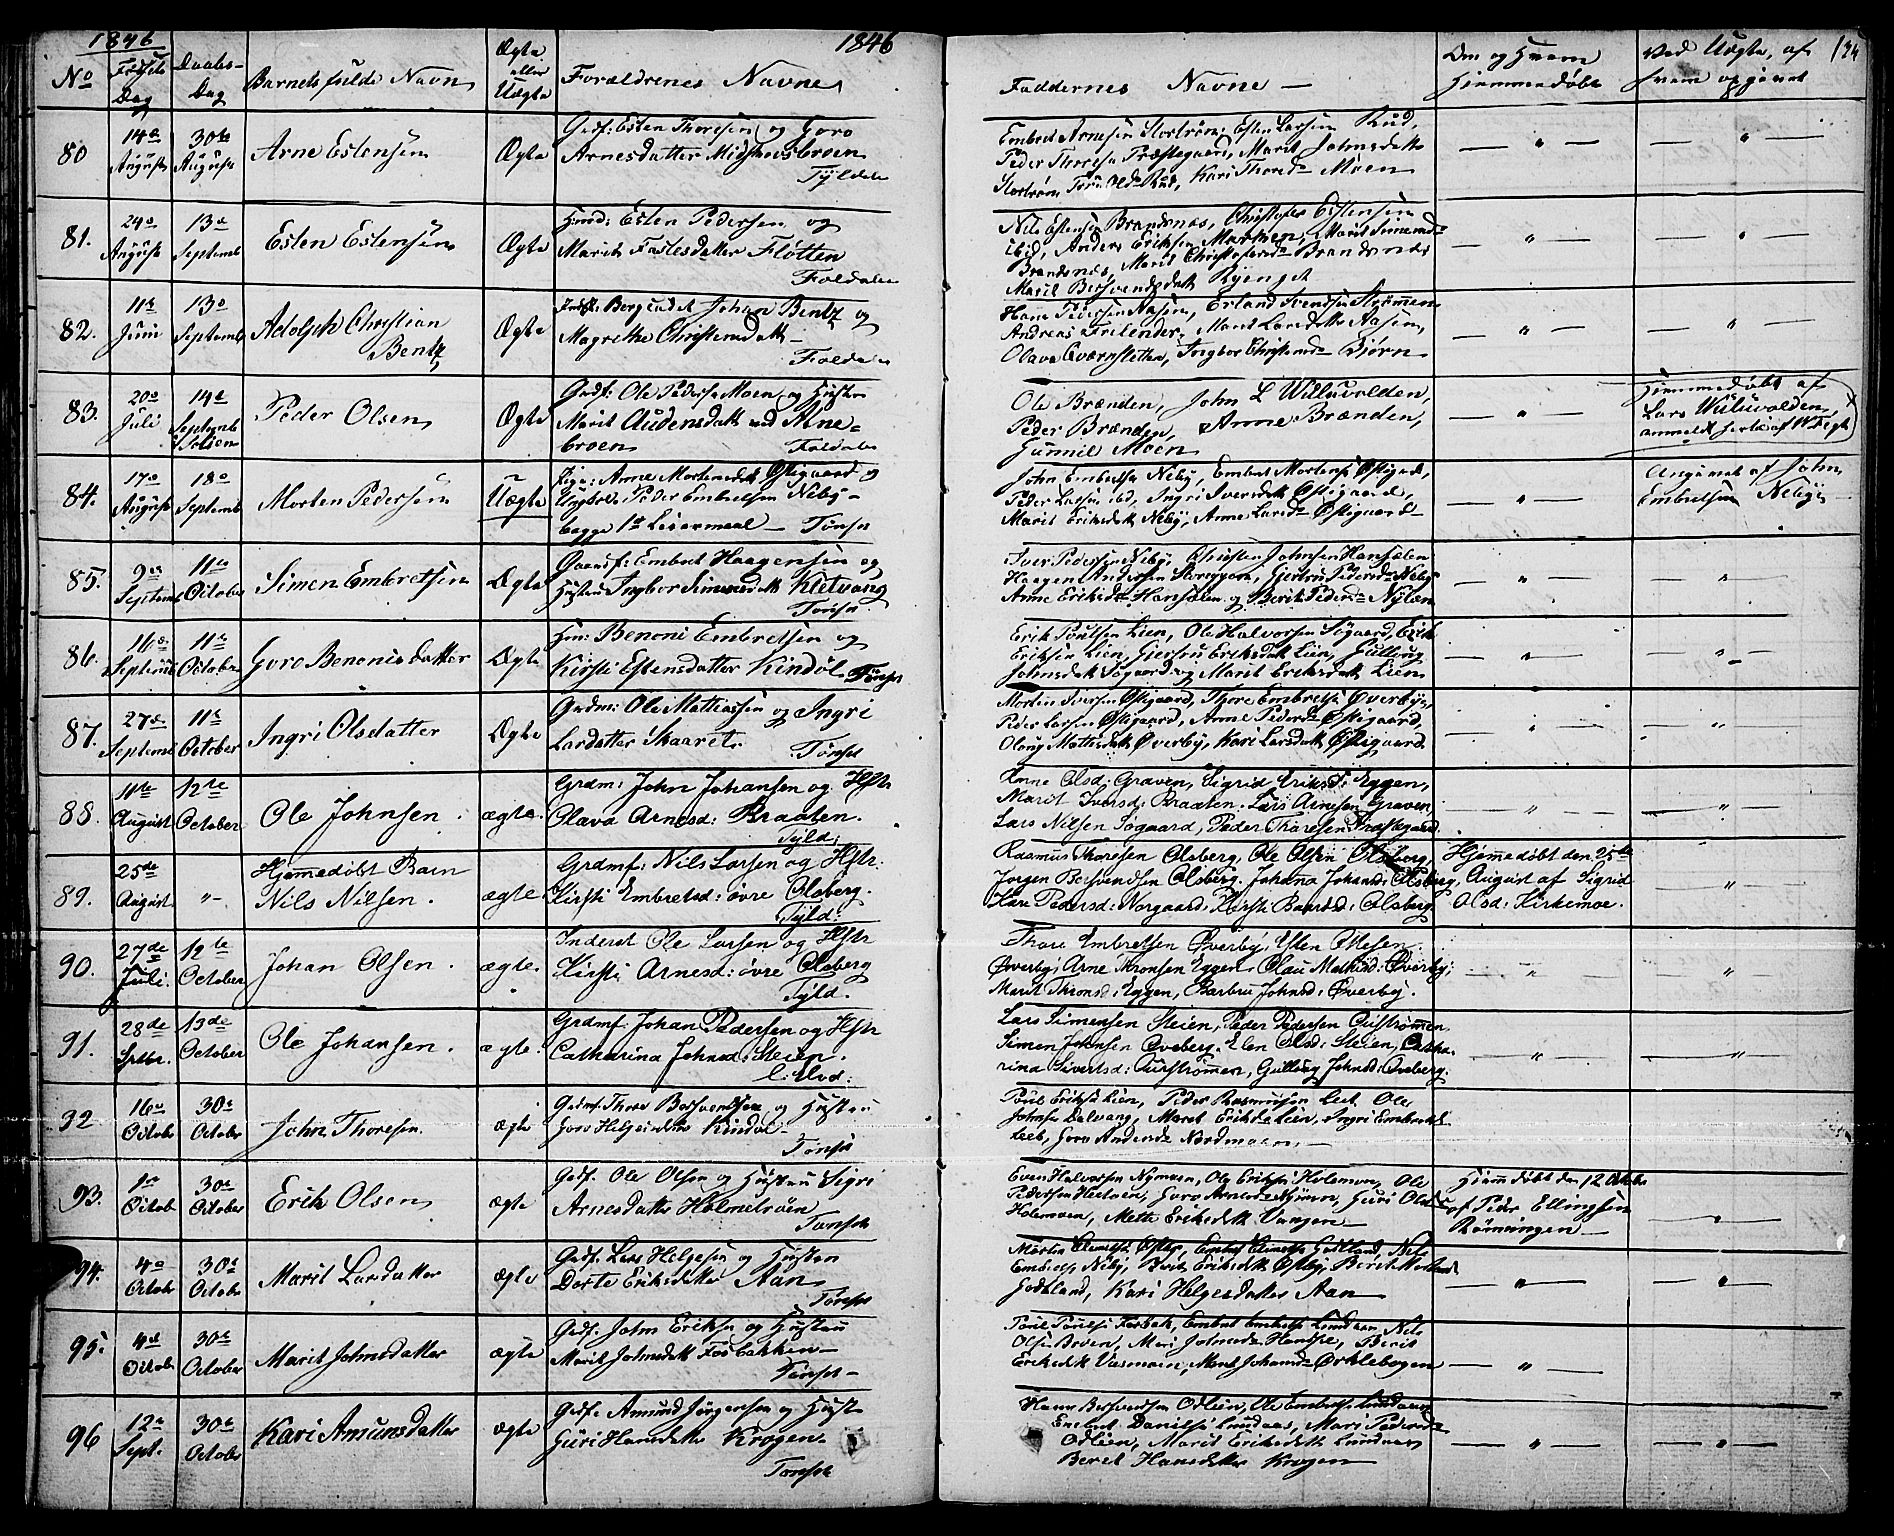 1846
No
Fødsels Dag
Daabs- Dag
Barnets fulde Navn
Ægte eller Uægte
Forældrenes Navne
1846
Faddernes Navne
Om og Hvem Hjemmedøbt
Ved Uægte, af hvem opgivet
134
80
14de August
30te August
Arne Estensen
Ægte
Gdsf: Esten Thoresen og Goro
Arnesdatter Midthovsbroen
Tyldalen
Embret Arnesen Storstrøm, Esten Larsen Rud,
Peder Thoresen Præstegaard, Marit Johnsdatt
Storstrøm Olsd Rud, Kari Thored Moen
81.
24de August
13de Septemb
Esten Estensen
Ægte
Huusd: Esten Pedersen og
Marit Flotten
Foldalen
Nils Estensen Brandsnæs, Christofer Estensen
ibid, Anders Eriksen Marit Simensd
Brandsnæs, Marit Christofersd Brandsnæs
Marit Ryenget
82.
11te Juni
13de Septemb
Adolph Christian
Bentz
Ægte
Johan Bentz og
Magrethe Christensdatt
Foldalen
Hans Pedersen Aasen, Erland Svendsen Strømen
Andreas Marit Larsdatter Aasen,
Olava Qværnsletten, Ingbor Bjørn
83.
20de Juli
14de Septemb
Peder Olsen
Ægte
Gdsf: Ole Pedersen Moen og Hustru
Marit Audensdatt ved Atne-
broen
Foldalen
Ole Brænden, John L Willuvolden,
Peder Brænden, Anne Brænden,
Gunnil Moen
Hjemmedøbt af
Lars Willuvolden,
84.
17de August
18de Septemb
Morten Pedersen
Uægte
Pige: Anne Mortensdatt Østigaard og
Ungkarl: Peder Embretsen Neby
begge 1ste Leiermaal
Tønset
John Embretsen Neby, Embret Mortens Østigrd,
Peder Larsen ibd, Ingri Iversdatt Østigaard,
Marit Eriksdatt Neby, Anne Larsd Østigaard
Angivet af John
Embretsen Neby
85.
9de Septemb
11te October
Simen Embretsen
Ægte
Gaardsf: Embret Haagensen og
Hustru Ingbor Simensdatt Kletvang
Tønset
Iver Pedersen Neby, Christen Johnsen Hansælen
Haagen Andersen Gjertru Pedersd Neby
Anne Eriksd Hansælen og Berit Pedersd Nylæn
86.
16de Septemb
11te October
Goro Benonisdatter
Ægte
Hsm: Benoni Embretsen og
Kirsti Estensdatter Kindøl
Tønset
Erik Poulsen Lien, Ole Halvorsen Søgaard, Erik
Eriksen Lien, Gjertru Eriksdatt Lien, Gullaug
Johnsdatt Søgaard og Marit Eriksdatt Lien
87.
27de Septemb
11te October
Ingri Olsdatter
Ægte
Grdm: Ole Mathiassen og Ingri
Larsdatter Skaaret
Tønset
Morten Iversen Østigaard, Thore Embretsen Øverby,
Peder Larsen Østigaard, Anne Pedersd Østigaard,
Olaug Mathisdatt Øverby, Kari Larsdatt Østigaard
88.
11te August
12te October
Ole Johnsen.
ægte.
Grdm: John Johansen og Hstr
Olava Arnesd: Braaten.
Tyld:
Anne Olsd: Graven, Sigrid Eriksd: Eggen,
Marit Iversd: Braaten. Lars Arnesen Graven
Lars Nilsen Søgaard, Peder Thoresen Præstegaard.
89.
25de August
"
Hjemmedøbt Barn
Nils Nilsen.
ægte
Grdmf: Nils Larsen og Hstr.
Kirsti Embretsd: øvre Olsberg.
Tyld:
Rasmus Thoresen Olsberg, Ole Olsen Olsberg,
Jørgen Bersvendsen Olsberg. Johana Johansd: Olsberg,
Kari Pedersd: Norgaard, Kirsti Baardsd: Olsberg.
Hjemmedøbt den 25de
August af Sigrid
Olsd: Kirkemoe.
90.
27de Juli
12te October
Johan Olsen.
ægte.
Inderst Ole Larsen og Hstr
Kirsti Arnesd: øvre Olsberg
Tyld.
Thore Embretsen Øverby, Esten Ottesen
Øverby, Arne Thronsen Eggen, Olau Mathisd: Øverby;
Marit Thronsd: Eggen, Barbru Johnsd: Øverby.
91.
28de Septbr.
13de October
Ole Johansen.
ægte.
Grdmf: Johan Pedersen og Hstr
Catharina Johnsd: Steien.
l: Elvd:
Lars Simensen Steien, Peder Pedersen Austrømmen.
Simen Johnsen Oveberg. Elen Olsd: Steien, Catha-
rina Sivertsd: Aurstrømmen, Gullaug Johnsd: Oveberg.
92
16de Octob
30te October
John Thoresen.
ægte
Gdmf: Thore Bersvendsen og Hustru
Goro Helgesdatter Kindøl
Tønset
Poul Eriksen Lien, Peder Rasmussen Ole
Johnsen Dalvang, Maret Eriksd Lien, Ingri Embretsd
Goro Andersd Nordmoen
93.
1de Octob
30te October
Erik Olsen
ægte
Gdsf. Ole Olsen og Hustru Sigri
Arnesdatter Holmetrøen
Tønset
Even Halvorsen Nymoen, Ole Eriksen Holemoen, Ole
Pedersen Goro Arnesd Nymoen, Guri Olsd
Holemoen, Mette Eriksdatt Vangen
Hjemmdøbt den 12 Octobr
af Peder Ellingsen
Rønningen
94.
4de Octob
30te October
Marit Larsdatter
ægte
Gdsf. Lars Helgesen og Hustru
Dorte Eriksdatter Aan
Tønset
Godtland, Kari Helgesdatter Aan
95.
4de Octob
30te October
Marit Johnsdatter
ægte
Gdsf. John Eriksen og Hustru
Marit Johnsdatt Fosbakken
Tønset
Eriksdatt Vasmoen, Marit Johansd Ørklebogen
96
12te Sept.
30te October
Kari Amunsdatter
ægte
Gdsf. Amund Jørgensen og Hustr
Guri Hansdatter Krogen
Tønset
Hans Bersvendsen Odlien, Ole Embretsen
Embret Danielsen Mari Pedersd
Odlien, Marit Eriksdatt
Berit Hansdatter Krogen